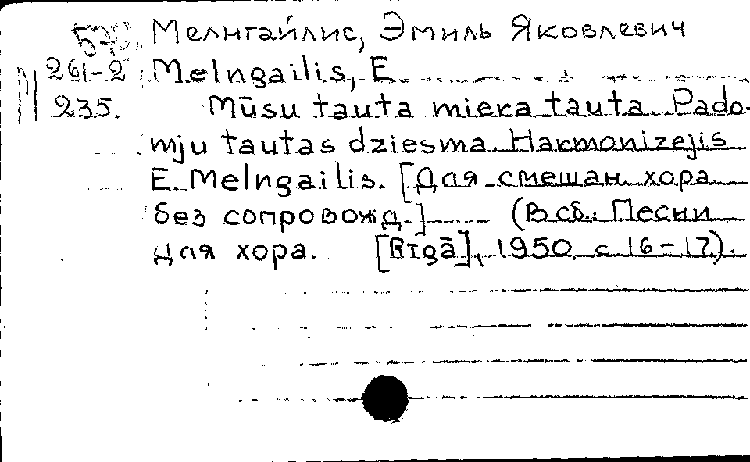 Мелнгайлис, Эмиль Яковлевич
261-2 Melngailis, E.
235. Mūsu tauta miera tauta. Pado-
mju tautas dziesma. Harmonizejis
E. Melngailis. [Для смешан. хора
без сопровожд.] (В сб.: Песни
для хора. [Rīgā], 1950, с 16-17).